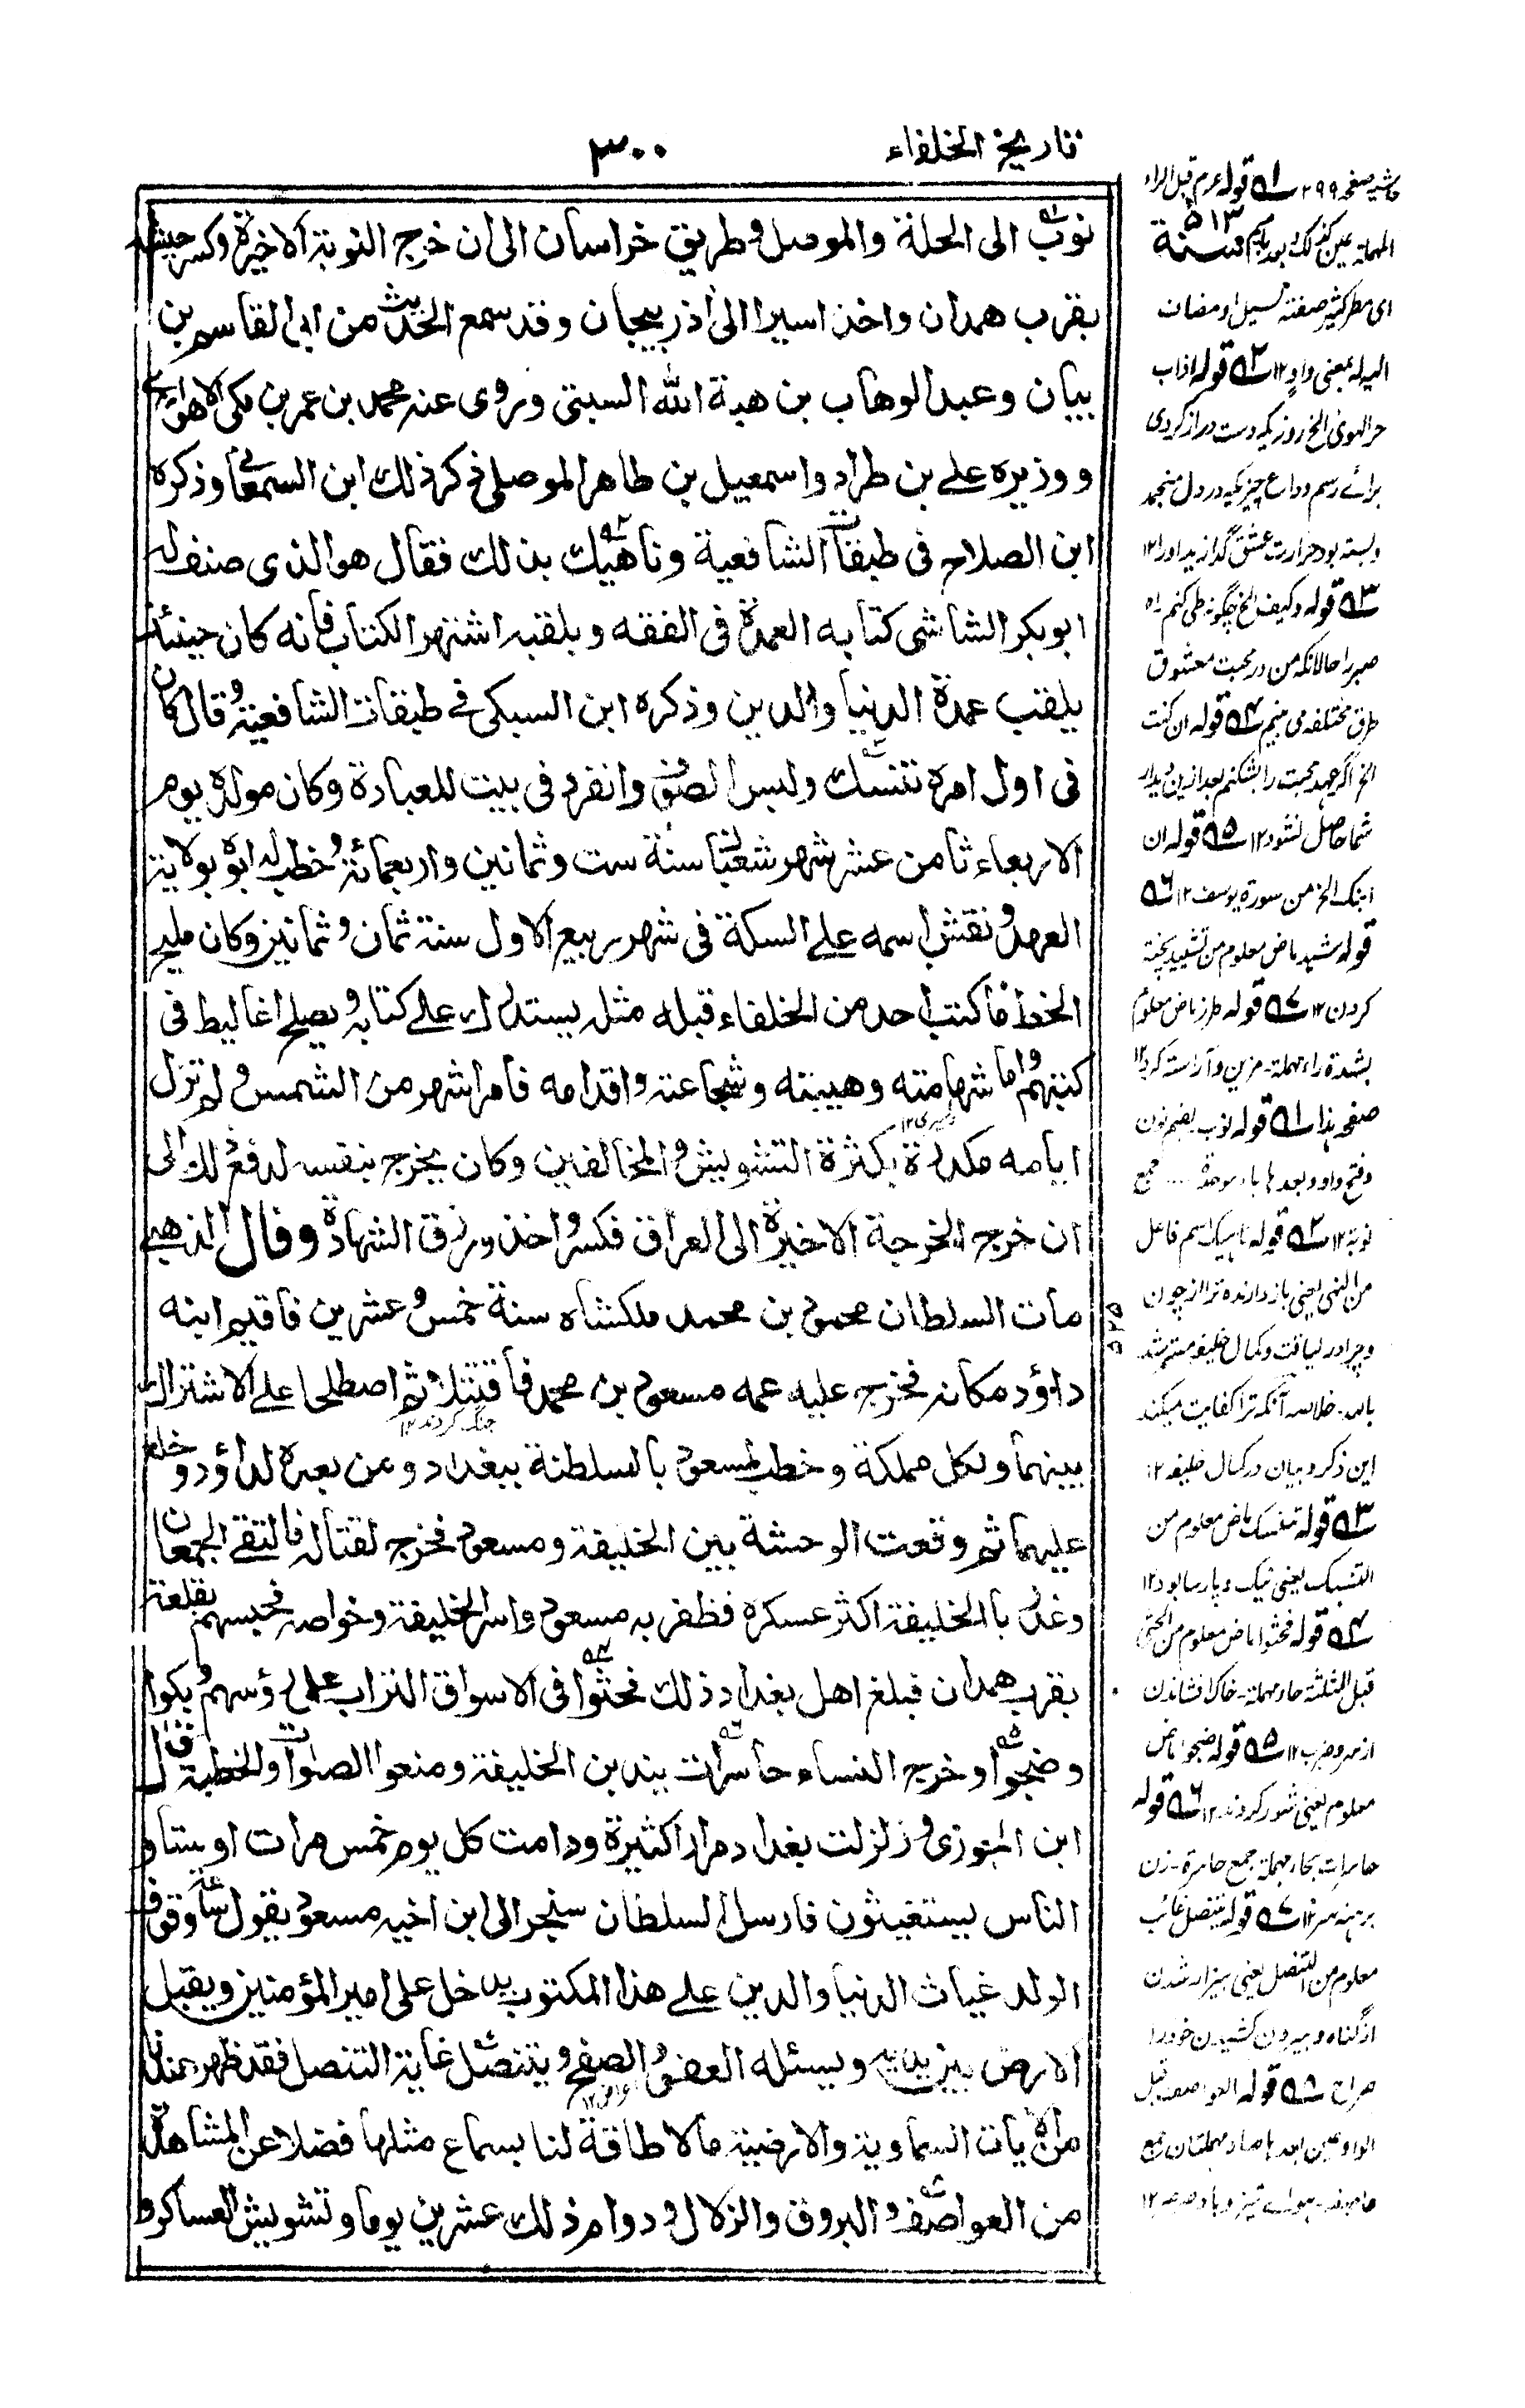 تاريخ الخلفاء
٣٠٠
نوب الى الحلة والموصل وطريق خراسان الى ان خرج النوبة الاخيرة وكسر جيشه
بقرب همدان واخذ اسيرا الى اذربيجان وقد سمع الحديث من ابى القاسم بن
بيان وعبد الوهاب بن هبة الله السبتى وروى عنه محمد بن عمر بن مكى الاهوازى
ووزيره على بن طراد واسمعيل بن طاهر الموصلى ذكر ذلك ابن السمعانى وذكره
ابن الصلاح فى طبقات الشافعية وناهيك بذلك فقال هو الذى صنف له
ابو بكر الشاشى كتابه العمدة فى الفقه وبلقبه اشتهر الكتاب فانه كان حينئذ
يلقب عمدة الدنيا والدين وذكره ابن السبكى فى طبقات الشافعية وقال كان
فى اول امره تنسك ولبس الصوف وانفرد فى بيت للعبادة وكان مولده يوم
الاربعاء ثامن عشر شهر شعبان سنة ست وثمانين واربعمائة وخطب له ابوه بولاية
العهد ونقش اسمه على السكة فى شهر ربيع الاول سنة ثمان وثمانين وكان مليح
الخط ما كتب احد من الخلفاء قبله مثله يستدرك على كتابه ويصلح اغاليط فى
كتبهم واما شهامته وهيبته وشجاعته واقدامه فامر اشهر من الشمس ولم تزل
ايامه مكدرة بكثرة التشويش والمخالفين وكان يخرج بنفسه لدفع ذلك الى
ان خرج الخرجة الاخيرة الى العراق فكسر واخذ ورزق الشهادة وقال الذهبى
مات السلطان محمود بن محمد ملكشاه سنة خمس وعشرين فاقيم ابنه
٥٢٥
داؤد مكانه فخرج عليه عمه مسعود بن محمد فاقتتلا ثم اصطلحا على الاشتراك
جنگ کردند ١٢
بينهما ولكل مملكة وخطب لمسعود بالسلطنة ببغداد ومن بعده لداؤد وخلع
عليهما ثم وقعت الوحشة بين الخليفة ومسعود فخرج لقتاله فالتقى الجمعان
وغدر بالخليفة اكثر عسكره فظفر به مسعود واسر الخليفة وخواصه فحبسهم بقلعة
بقرب همدان فبلغ اهل بغداد ذلك فحثوا فى الاسواق التراب على رؤسهم وبكوا
وضجوا وخرج النساء حاسرات يندبن الخليفة ومنعوا الصلوات والخطبة قال
ابن الجوزى وزلزلت بغداد مرارا كثيرة ودامت كل يوم خمس مرات او ستا و
الناس يستغيثون فارسل السلطان سنجر الى ابن اخيه مسعود يقول ساعة وقوف
الولد غياث الدنيا والدين على هذا المكتوب يدخل على امير المؤمنين ويقبل
الارض بين يديه ويسئله العفو والصفح ويتنصل غاية التنصل فقد ظهر عندنا
من الايات السماوية والارضية ما لا طاقة لنا بسماع مثلها فضلا عن المشاهدة
من العواصف والبروق والزلازل ودوام ذلك عشرين يوما وتشويش العساكر و
حاشيه صفحه ٢٩٩ ١ قوله عرم قبل الراء
سنة ٥١٣
اى مطر كثير صفته تسيل او مضات
الميوله بمعنى واد ١٢ ٢ قوله اذاب
حر الهوى الخ روزيکه دست دراز کردى
برائے رسم وداع چيزيکه در دل منجمد
وبسته بود حرارت عشق گدازيد اورا ١٢
٣ قوله وكيف الخ چگونه طى کنم راه
صبر را حالانکه من در محبت معشوق
طرق مختلفه مى بينم ٤ قوله ان كنت
الخ اگر عهد محبت را بشکنم بعد ازين ديدار
شما حاصل نشود ١٢ ٥ قوله ان
ابنك الخ من سورة يوسف ١٢ ٦
قوله شيد ماض معلوم من تشييد پخته
کردن ١٢ ٧ قوله طرز ماض معلوم
بشدة راء مهملة مزين وآراسته کرد ١٢
صفحه هذا ١ قوله نوب بضم نون
وفتح واو وبعدها باء موحدة جمع
نوبة ١٢ ٢ قوله ناهيك اسم فاعل
من النهى يعنى باز دارنده ترا از چون
وچرا در لياقت وکمال خليفه مسترشد
بالله خلاصه آنکه ترا کفايت ميکند
اين ذکر وبيان در کمال خليفه ١٢
٣ قوله تنسك ماض معلوم من
التنسك يعنى نيک وپارسا بود ١٢
٤ قوله فحثوا ماض معلوم من الحثى
قبل المثلثة حاء مهملة خاک افشاندن
از نصر وضرب ١٢ ٥ قوله ضجوا ماض
معلوم يعنى شور کردند ١٢ ٦ قوله
حاسرات بحاء مهملة جمع حاسرة زن
برهنه سر ١٢ ٧ قوله يتنصل غائب
معلوم من التنصل يعنى بيزار شدن
از گناه وبيرون کشيدن خود را
صراح ٨ قوله العواصف قبل
الواو عين بعدها صاد مهملتان جمع
عاصفة ہوائے تيز وباد صرصر ١٢